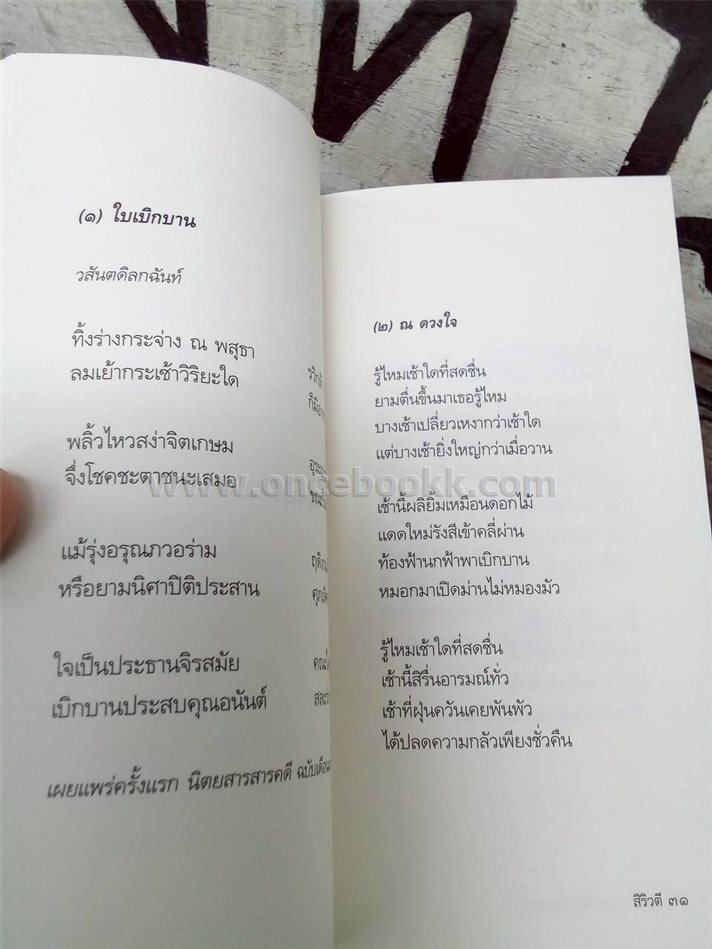 (๑) ใบเบิกบาน
วสันตดิลกฉันท์
ทิ้งร่างกระจ่าง ณ พสุธา
ลมเย้ากระเซ้าวิริยะใด
พลิ้วไหวสง่าจิตเกษม
จึ่งโชคชะตาชนะเสมอ
แม้รุ่งอรุณภวอร่าม
หรือยามนิศาปีติประสาน
ใจเป็นประธานจิรสมัย
เบิกบานประสบคุณอนันต์
เผยแพร่ครั้งแรก นิตยสารสารคดี ฉบับเดือน
(๒) ณ ดวงใจ
รู้ไหมเช้าใดที่สดชื่น
ยามตื่นขึ้นมาเธอรู้ไหม
บางเช้าเปลี่ยวเหงากว่าเช้าใด
แต่บางเช้ายิ่งใหญ่กว่าเมื่อวาน
www.oncebookk.com
เช้านี้ผลิยิ้มเหมือนดอกไม้
แดดใหม่รังสีเข้าคลี่ผ่าน
ท้องฟ้านกฟ้าพาเบิกบาน
หมอกมาเปิดม่านไม่หมองมัว
รู้ไหมเช้าใดที่สดชื่น
เช้านี้สิรื่นอารมณ์ทั่ว
เช้าที่ฝุ่นควันเคยพันพัว
ได้ปลดความกลัวเพียงชั่วคืน
สิริวตี ๓๑